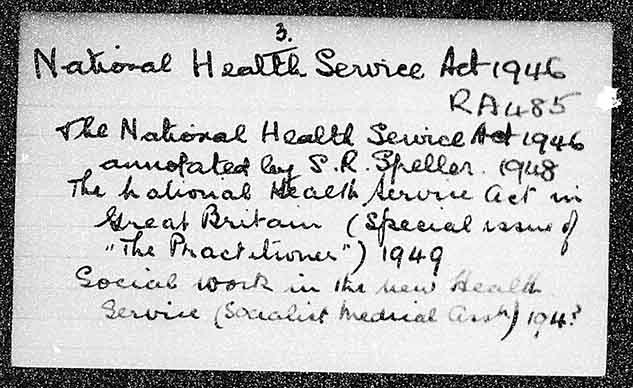 3.
National Health Service Act 1946
RA485
The National Health Service Act 1946
annotated by S.R. Speller. 1948
The National Health Service Act in
Great Britain (Special issue of
"The Practitioner") 1949
Social work in the new Health
Service (Socialist Medical Assn)